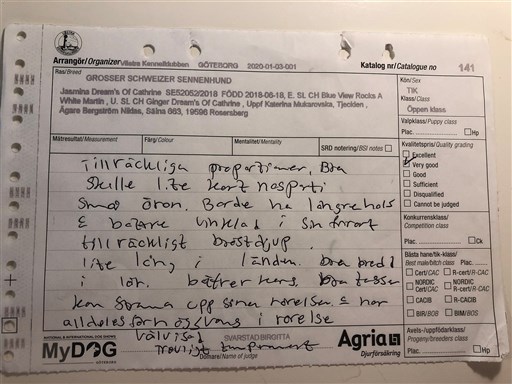 Arrangör/Organizer Västra Kennelklubben GÖTEBORG 2020-01-03-001
Katalog nr/Catalogue no 141
Ras/Breed
GROSSER SCHWEIZER SENNENHUND
Jasmina Dream's Of Cathrine SE52052/2018 FÖDD 2018-06-18, E. SL CH Blue View Rocks A
White Martin , U. SL CH Ginger Dream's Of Cathrine , Uppf Katerina Mukarovska, Tjeckien ,
Ägare Bergström Niklas, Sälna 663, 19596 Rosersberg
Kön/Sex
TIK
Klass/Class
Öppen klass
Valpklass/Puppy class
Plac. Hp
Mätresultat/Measurement Färg/Colour Mentalitet/Mentality SRD notering/BSI notes
Kvalitetspris/Quality grading
Excellent
Very good
Good
Sufficient
Disqualified
Cannot be judged
Konkurrensklass/
Competition class
Plac. Ck
Bästa hane/tik-klass/
Best male/bitch class Plac.
Cert/CAC R-cert/R-CAC
NORDIC Cert/CAC NORDIC R-cert/R-CAC
CACIB R-CACIB
BIR/BOB BIM/BOS
Avels-/uppfödarklass/
Progeny/breeders class
Plac. Hp
Tillräckliga proportioner, Bra
skalle lite kort nosparti
Små öron. Borde ha längre hals
& bättre vinklad i sin front
tillräckligt bröstdjup.
lite lång i länden. bra bredd
i lår. bra tassar
kan strama upp sina rörelser & har
alldeles för högsvans i rörelse
välvisad
trevligt temperament
SVARSTAD BIRGITTA
Domare/Name of judge
NATIONAL & INTERNATIONAL DOG SHOWS
MyDOG
GÖTEBORG
Agria
Djurförsäkring